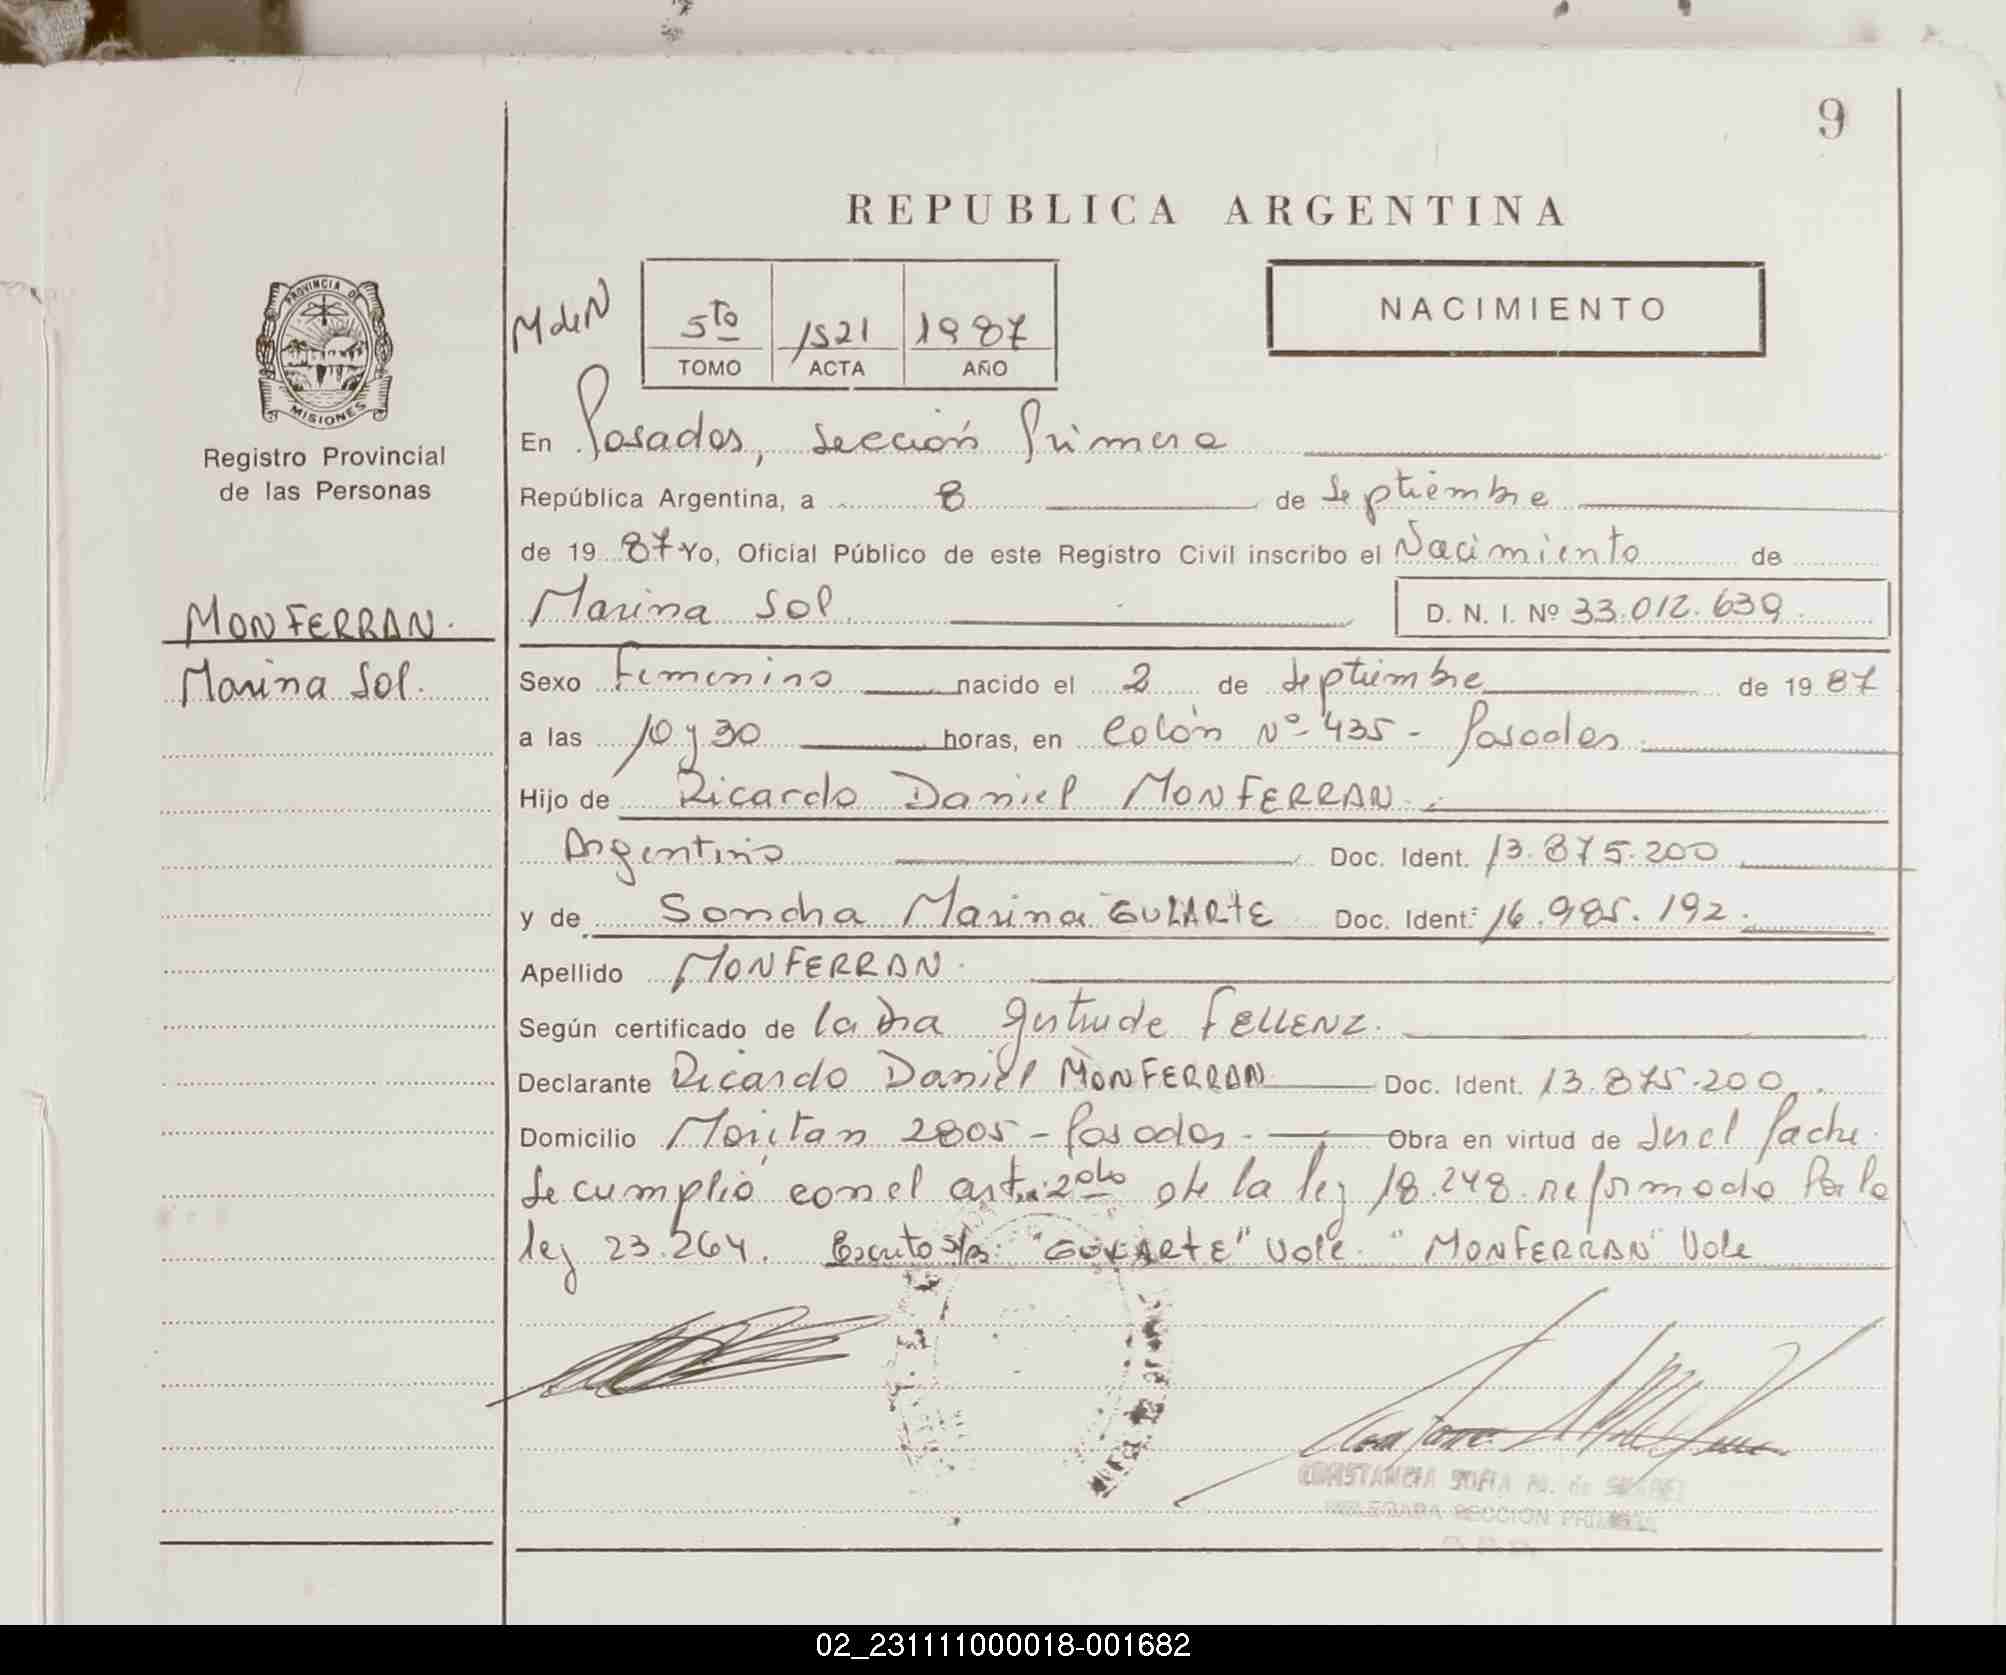 9
REPUBLICA ARGENTINA
PROVINCIA DE
MISIONES
Registro Provincial
de las Personas
MONFERRAN.
Marina Sol.
M de N
5to 1521 1987
TOMO ACTA AÑO
NACIMIENTO
En Posadas, Sección Primera
República Argentina, a 8 de Septiembre
de 19 87 Yo, Oficial Público de este Registro Civil inscribo el Nacimiento de
Marina Sol D. N. I. Nº 33.012.639.
Sexo Femenino nacido el 2 de Septiembre de 19 87
a las 10 y 30 horas, en Colón Nº 435 - Posadas.
Hijo de Ricardo Daniel MONFERRAN.
Argentino Doc. Ident. 13.875.200
y de Sandra Marina GULARTE Doc. Ident. 16.985.192.
Apellido MONFERRAN.
Según certificado de la Dra Gertrude FELLENZ.
Declarante Ricardo Daniel MONFERRAN Doc. Ident. 13.875.200.
Domicilio 2805 - Posadas. Obra en virtud de Ser el Padre.
Se cumplió con el art. 2do de la ley 18.248 reformado Por la
ley 23.264. Escrito s/r: "GULARTE" Vale. "MONFERRAN" Vale
CONSTANCIA SOFIA
DELEGADA SECCION PRIMERA
02_231111000018-001682